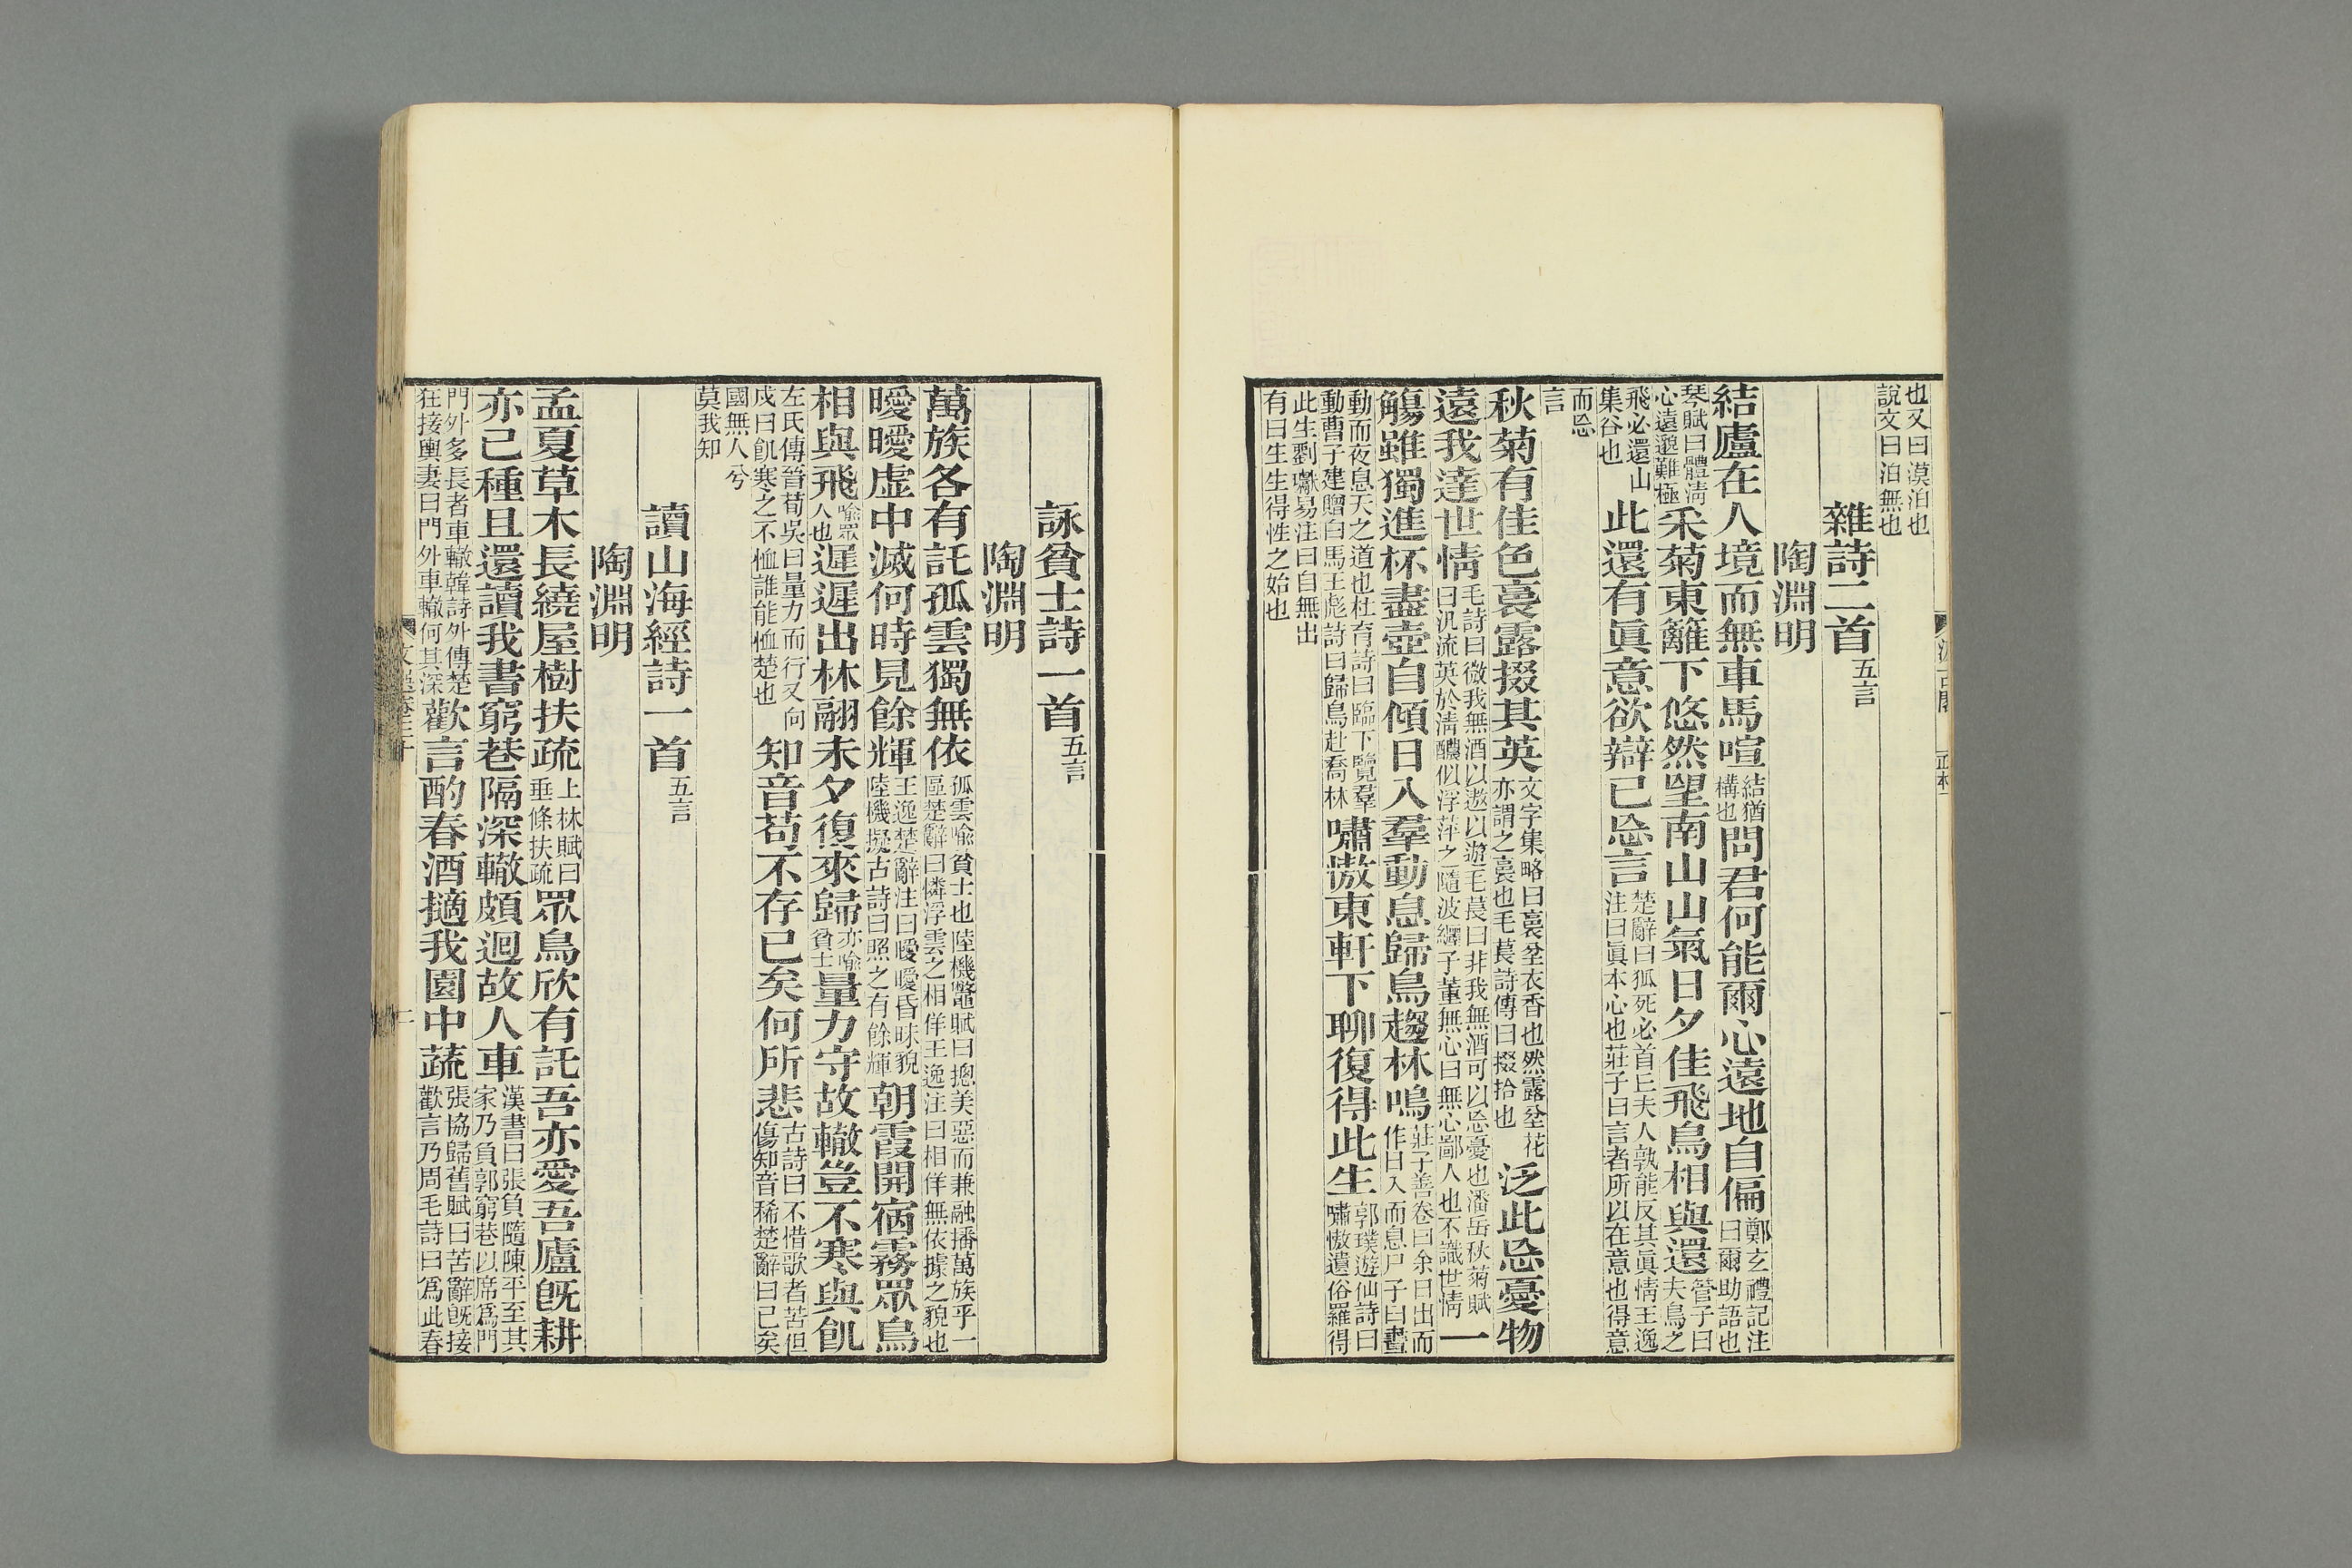 也又曰漠泊也
說文曰泊無也
雜詩二首五言
陶淵明
結廬在人境而無車馬喧結猶構也問君何能爾心遠地自偏鄭玄禮記注曰爾助語也
琴賦曰體淸心遠邈難極采菊東籬下悠然望南山山氣日夕佳飛鳥相與還管子曰夫鳥之
飛必還山集谷也此還有眞意欲辯已忘言楚辭曰狐死必首丘夫人孰能反其眞情王逸注曰眞本心也莊子曰言者所以在意也得意
而忘言
秋菊有佳色裛露掇其英文字集略曰裛坌衣香也然露坌花亦謂之裛也毛萇詩傳曰掇拾也泛此忘憂物
遠我達世情毛詩曰微我無酒以遨以遊毛萇曰非我無酒可以忘憂也潘岳秋菊賦曰汎流英於淸醴似浮萍之隨波纆子董無心曰無心鄙人也不識世情一
觴雖獨進杯盡壺自傾日入羣動息歸鳥趨林鳴莊子善卷曰余日出而作日入而息尸子曰晝
動而夜息天之道也杜育詩曰臨下覽羣動曹子建贈白馬王彪詩曰歸鳥赴喬林嘯傲東軒下聊復得此生郭璞遊仙詩曰嘯傲遺俗羅得
此生劉瓛易注曰自無出有曰生生得性之始也
詠貧士詩一首五言
陶淵明
萬族各有託孤雲獨無依孤雲喻貧士也陸機鼈賦曰揔美惡而兼融播萬族乎一區楚辭曰憐浮雲之相佯王逸注曰相佯無依據之貌也
曖曖虛中滅何時見餘輝王逸楚辭注曰曖曖昏昧貌陸機擬古詩曰照之有餘輝朝霞開宿霧眾鳥
相與飛喻眾人也遲遲出林翮未夕復來歸亦喻貧士量力守故轍豈不寒與飢
左氏傳晉荀吳曰量力而行又向戍曰飢寒之不恤誰能恤楚也知音苟不存已矣何所悲古詩曰不惜歌者苦但傷知音稀楚辭曰已矣
國無人兮莫我知
讀山海經詩一首五言
陶淵明
孟夏草木長繞屋樹扶疏上林賦曰垂條扶疏眾鳥欣有託吾亦愛吾廬旣耕
亦已種且還讀我書窮巷隔深轍頗迴故人車漢書曰張負隨陳平至其家乃負郭窮巷以席爲門
門外多長者車轍韓詩外傳楚狂接輿妻曰門外車轍何其深歡言酌春酒擿我園中蔬張協歸舊賦曰苦辭旣接歡言乃周毛詩曰爲此春